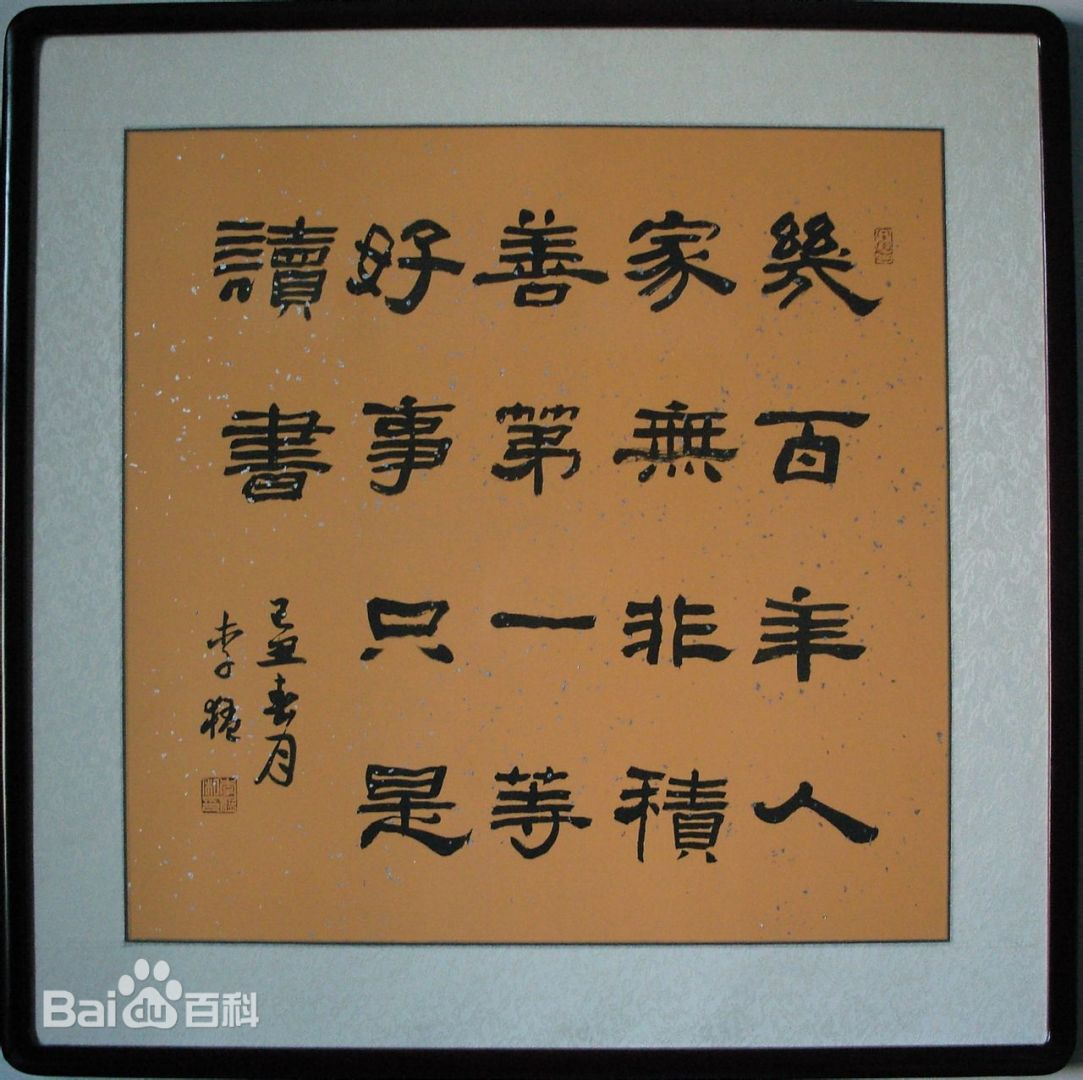 幾百年人
家無非積
善第一等
好事只是
讀書
己丑春月
李
Baidu百科